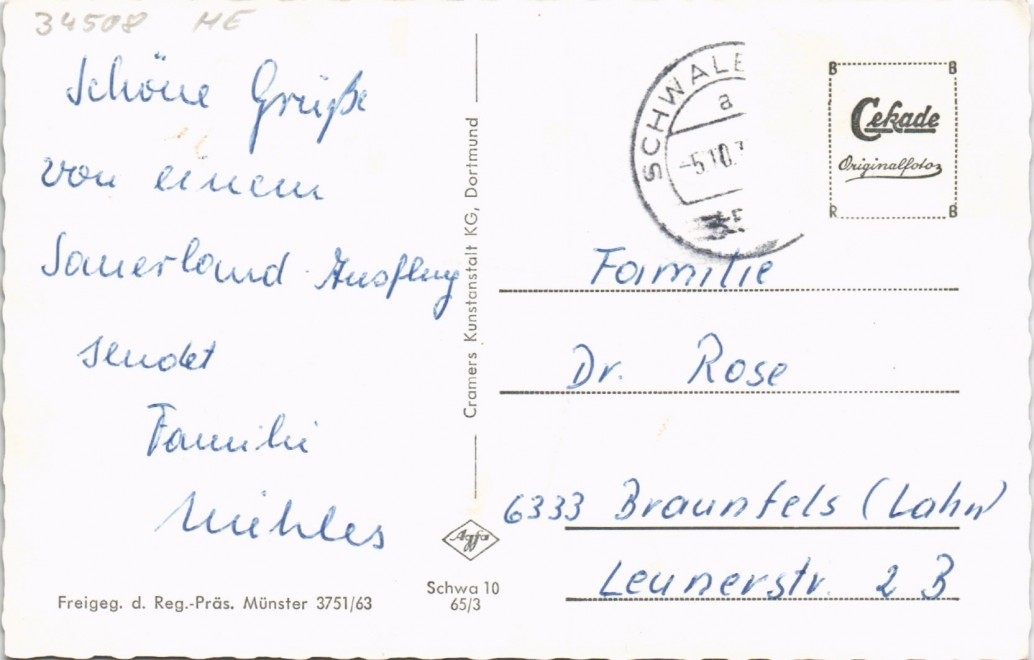 34508 HE
Schöne Grüße
von einem
Sauerland-Ausflug
sendet
Familie
Freigeg. d. Reg.-Präs. Münster 3751/63
Cramers Kunstanstalt KG, Dortmund
Agfa
Schwa 10
65/3
SCHWALE
a
-5.10.7
B B
Cekade
Originalfotos
R B
Familie
Dr. Rose
6333 Braunfels (Lahn)
Leunerstr. 2 B